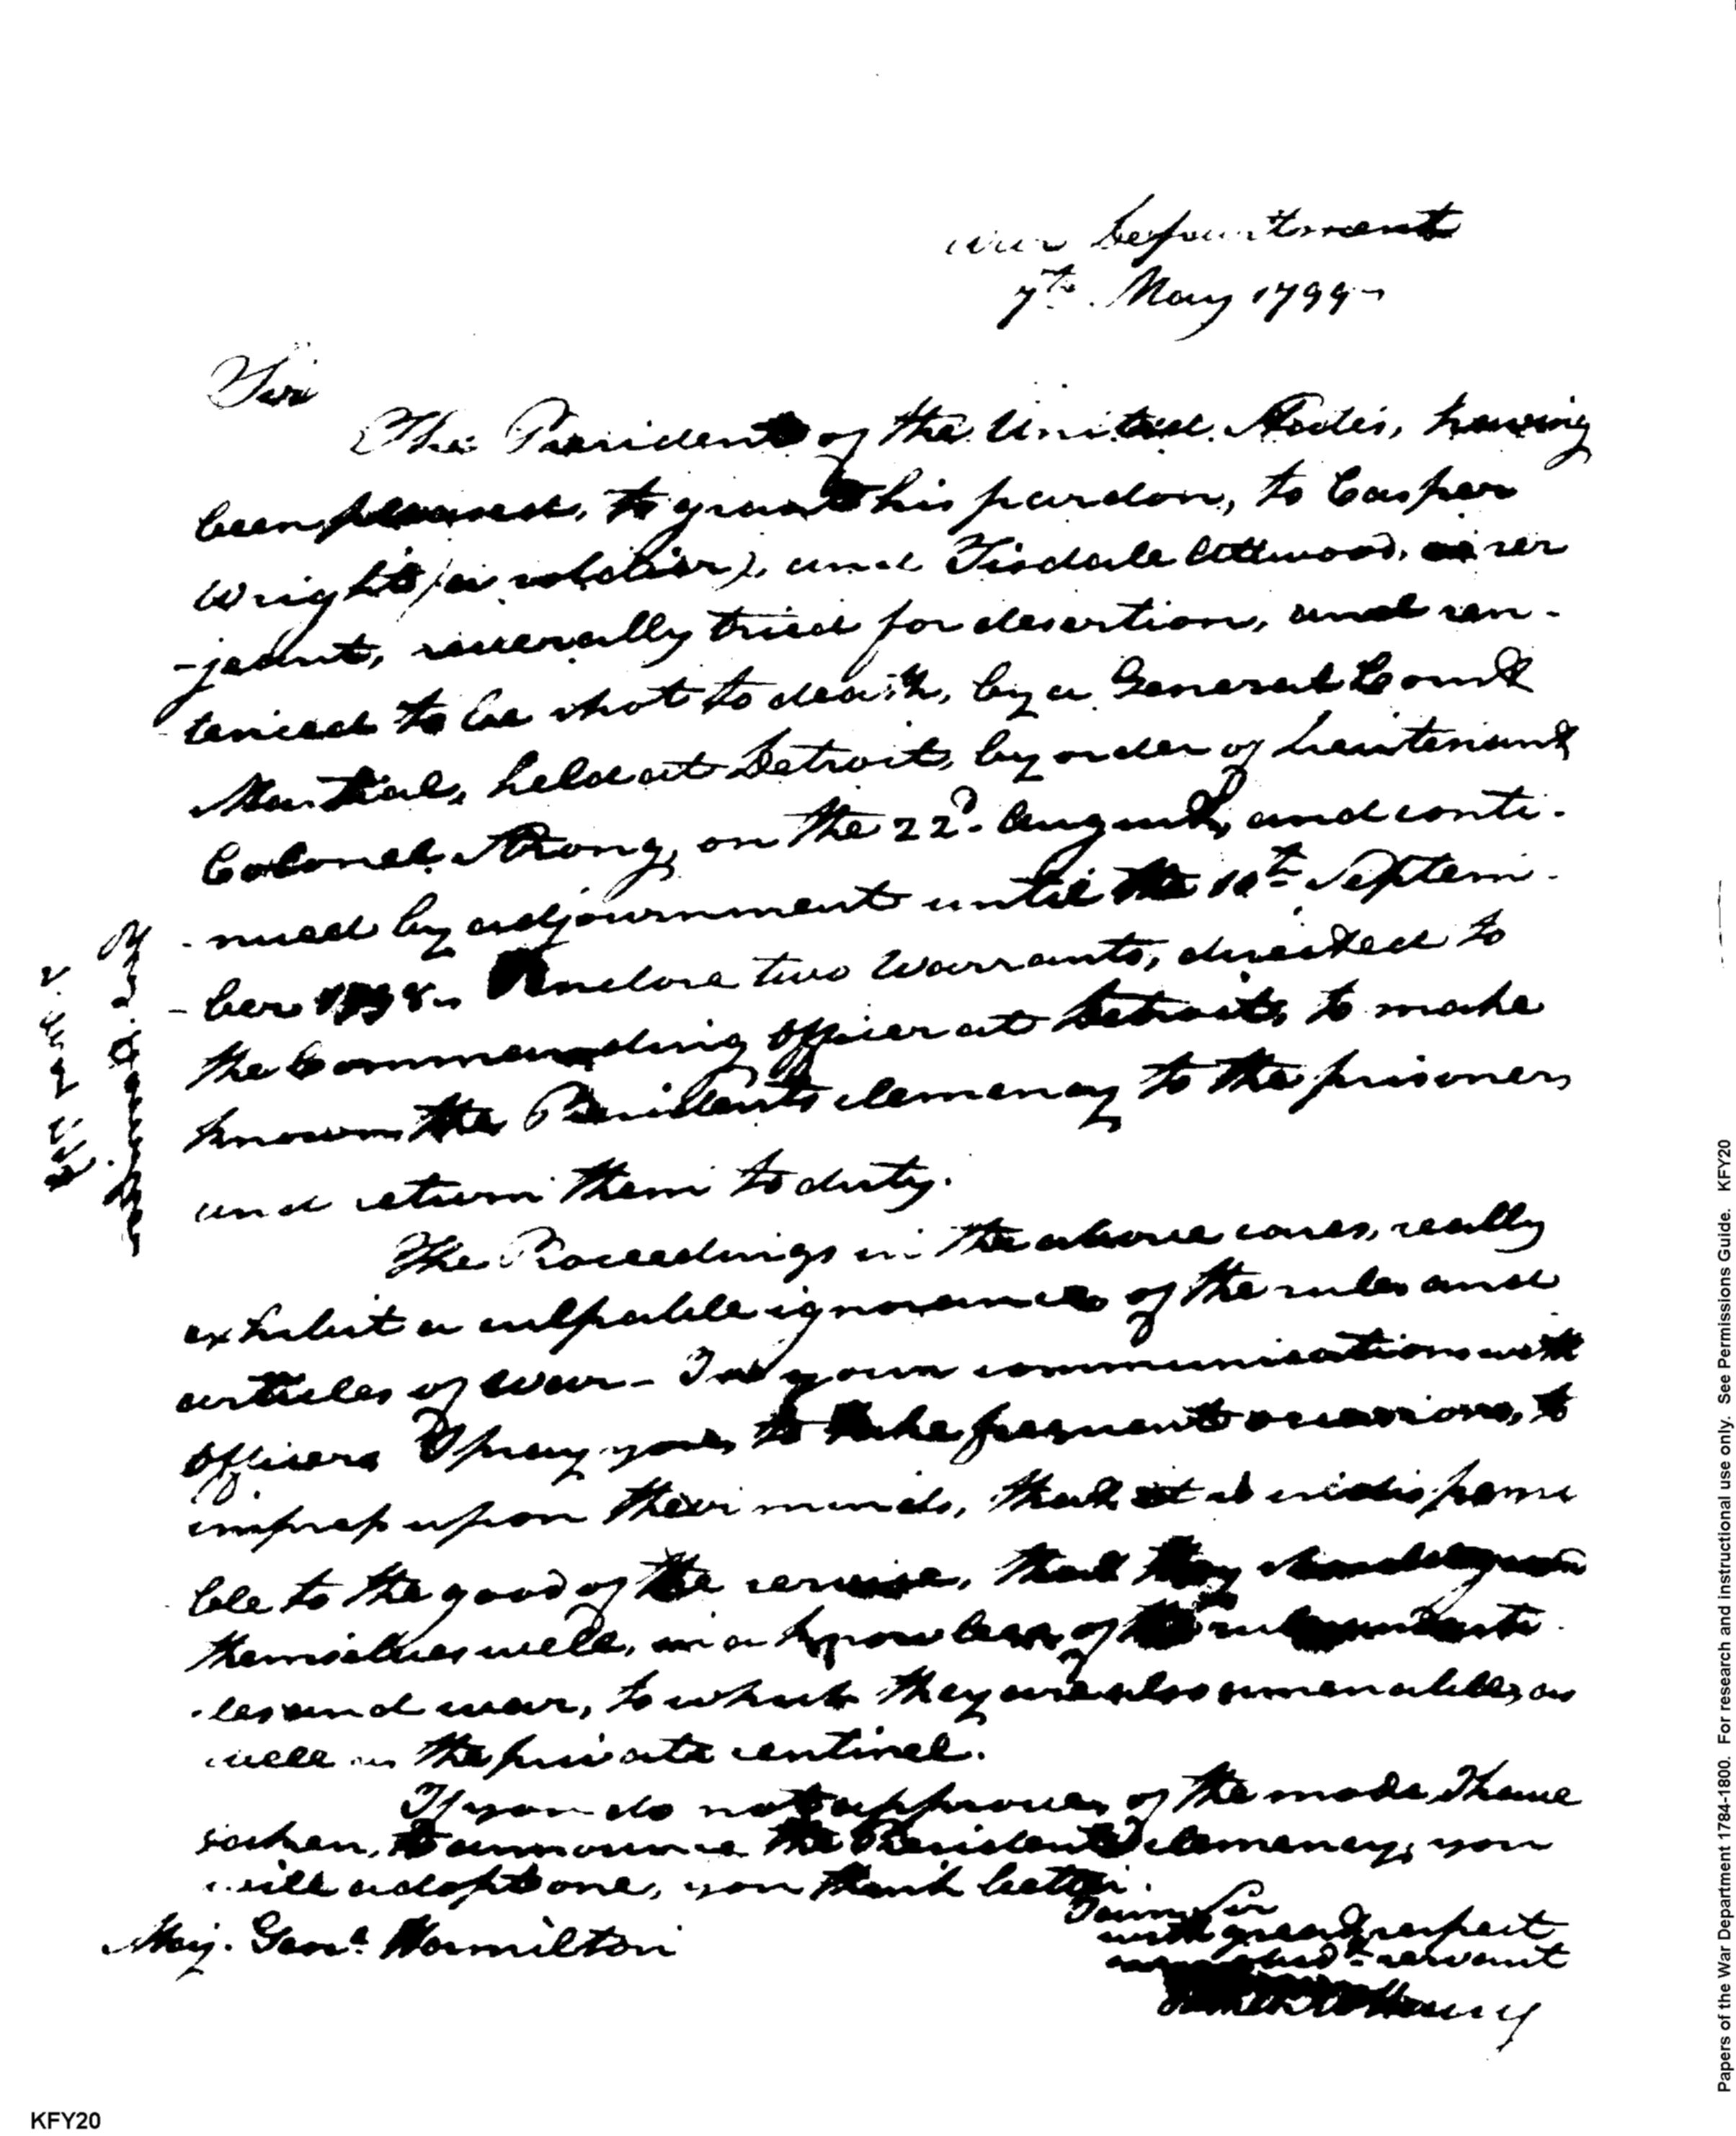 War Department
7th. May 1799
Sir
The President of the United States, having
been pleased, to grant his pardon, to Casper
Wright (a soldier), and Tisdale Attwood, a ser
-jeant, severally tried for desertion, and sen-
tenced to be shot to death, by a General Court
Martial, held at Detroit, by order of Lieutenant
Colonel Strong, on the 22d. August, and conti-
-nued by adjournment until the 10th Septem-
-ber 1798. I inclose two Warrants, directed to
the Commanding officer at Detroit, to make
known the Presidents clemency to the prisoners
and return them to duty.
The Proceedings in the above cases, really
exhibit a culpable ignorance of the rules and
articles of war - In your communications with
officers I pray you, to take frequent occasions, to
impress upon their minds, that it is indispensi
ble to the good of the service, that they should ground
themselves well, in a knowledge of the rules and arti-
-les and war, to which they are also amenable, as
well as the private sentinel.
If you do not approve, of the mode, I have
taken, to announce the Presidents clemency, you
will adopt one, you think better.
I am Sir
with great respect
your obedt. servant
James McHenry
Maj. Genl. Hamilton
KFY20
Papers of the War Department 1784-1800. For research and instructional use only. See Permissions Guide. KFY20